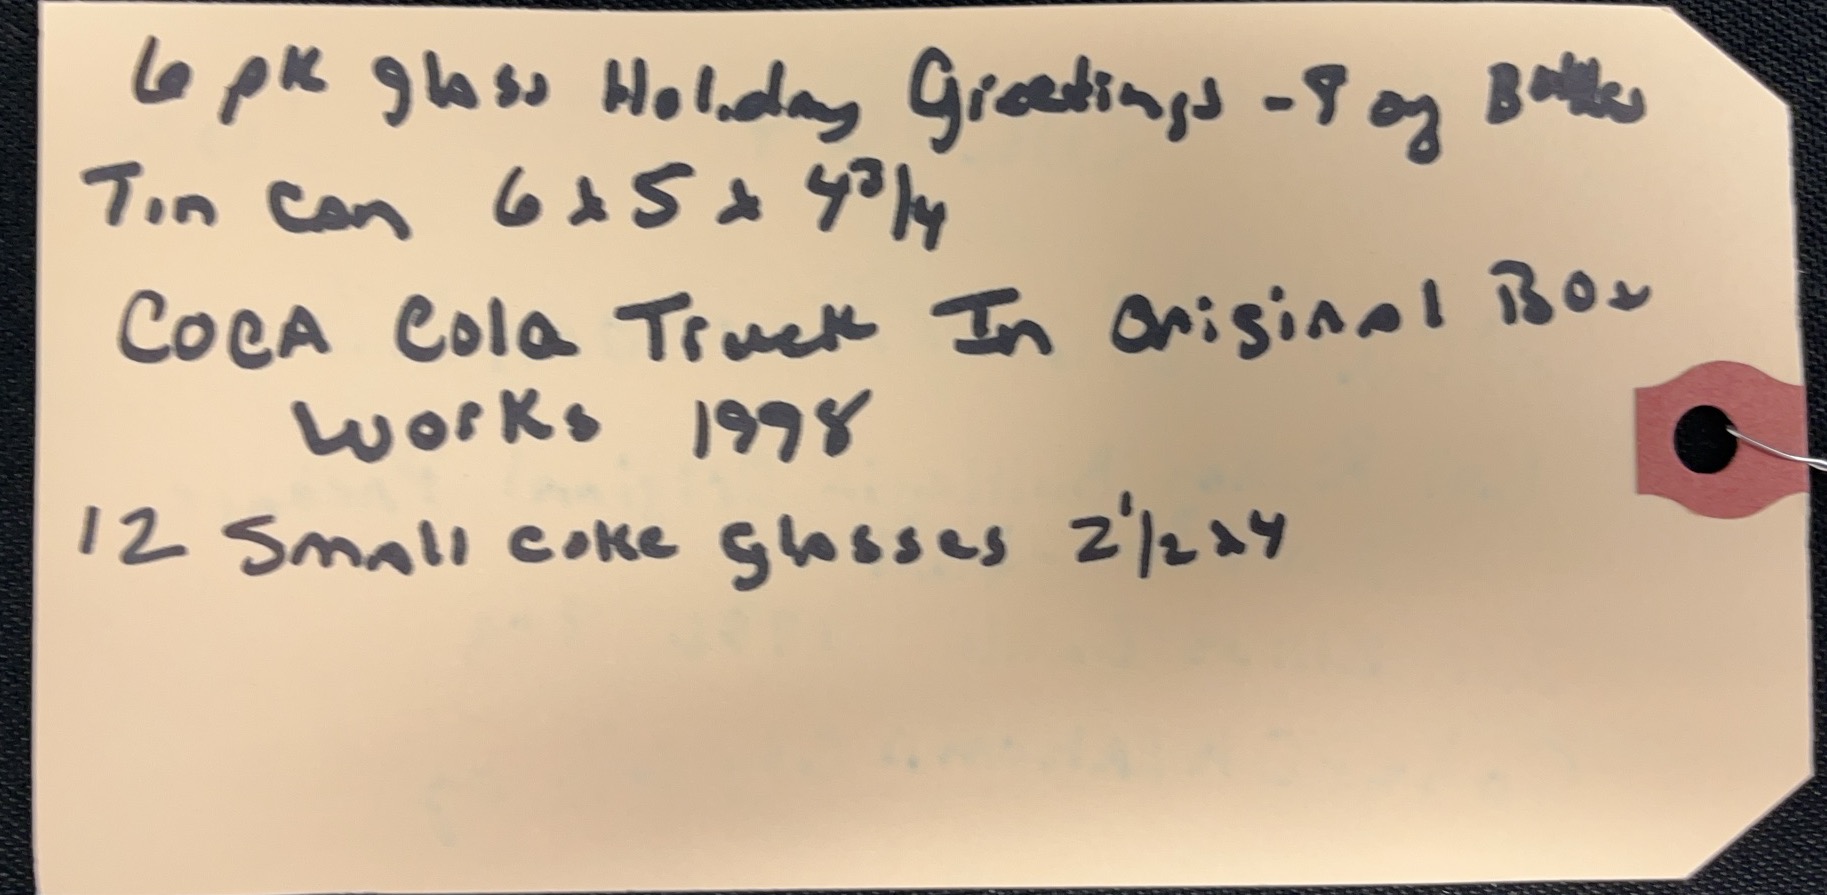 6 pk glass Holiday Greetings - 8 oz Bottles
Tin can 6 x 5 x 4 3/4
COCA Cola Truck In original Box
Works 1998
12 Small coke glasses 2 1/2 x 4